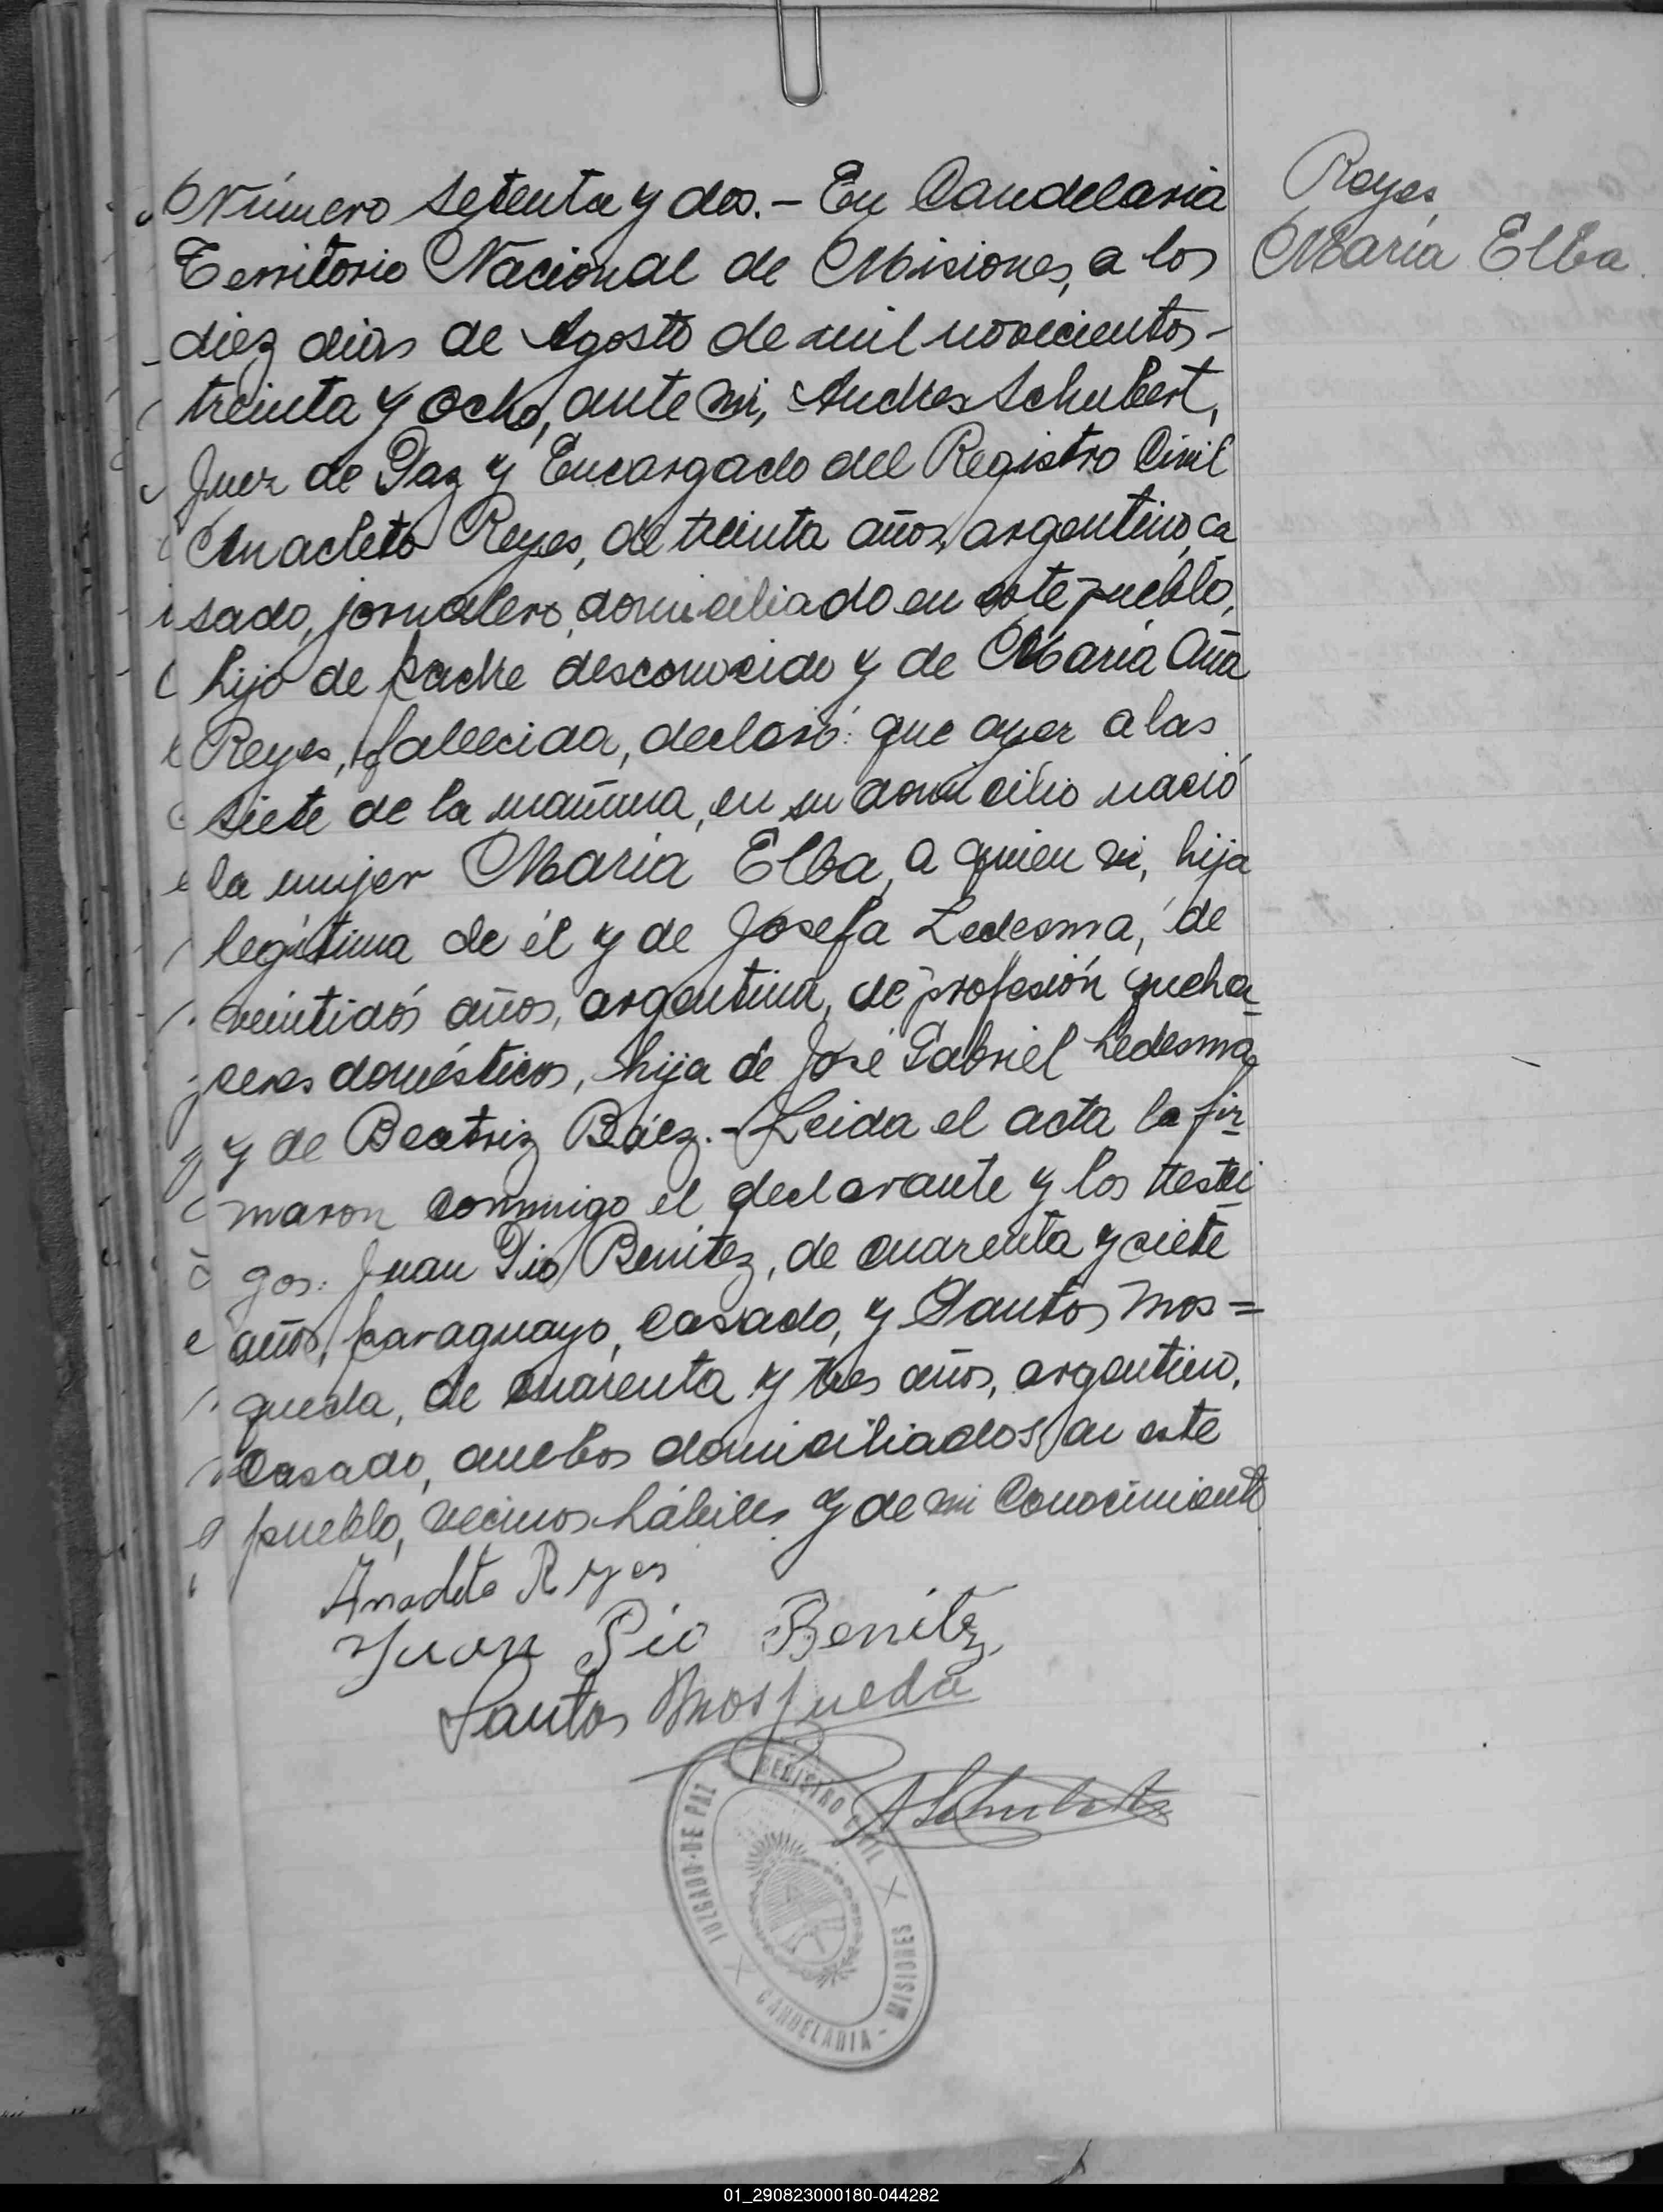 Número setenta y dos. - En Candelaria
Territorio Nacional de Misiones, a los
diez dias de Agosto de mil novecientos -
treinta y ocho, ante mi, Andres Schubert,
Juez de Paz y Encargado del Registro Civil
Anacleto Reyes, de treinta años, argentino, ca
sado, jornalero, domiciliado en este pueblo,
hijo de padre desconocido y de María Ana
Reyes, fallecida, declaró: que ayer a las
siete de la mañana, en su domicilio nació
la mujer María Elba, a quien vi, hija
legítima de él y de Josefa Ledesma, de
veintidós años, argentina, de profesión queha-
ceres domésticos, hija de José Gabriel Ledesma
y de Beatriz Báez. - Leida el acta la fir-
maron conmigo el declarante y los testi-
gos: Juan Pio Benitez, de cuarenta y siete
años, paraguayo, casado, y Santos Mos=
queda, de cuarenta y tres años, argentino,
casado, ambos domiciliados en este
pueblo, vecinos hábiles y de mi conocimiento
Reyes,
María Elba.
Anacleto Reyes
Juan Pio Benitez
Santos Mosqueda
ASchubert
JUZGADO DE PAZ
REGISTRO CIVIL
CANDELARIA - MISIONES
01_290823000180-044282